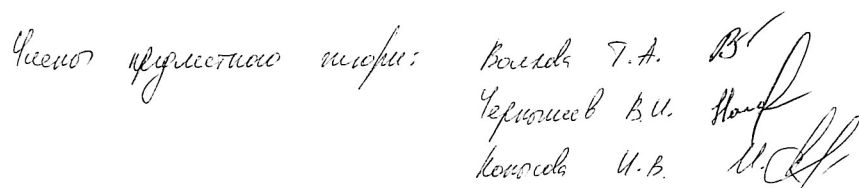 Члены предметного жюри: Волкова Т.А.
Чернышев В.И.
Конысова И.В.